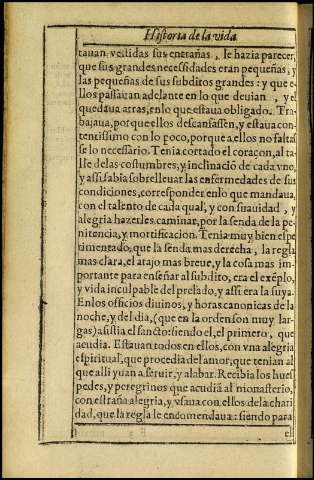 Historia de la vida
tauan vestidas sus entrañas, le hazia parecer,
que sus grandes necessidades eran pequeñas, y
las pequeñas de sus subditos grandes: y que e-
llos passauan adelante en lo que deuian, y el
quedaua atras, en lo que estaua obligado. Tra-
bajaua, porque ellos descansassen, y estaua con-
tentissimo con lo poco, porque a ellos no faltas
se lo necessario. Tenia cortado el coraçon, al ta-
lle de las costumbres, y inclinaciõ de cada vno,
y assi sabia sobrelleuar las enfermedades de sus
condiciones, corresponder en lo que mandaua,
con el talento de cada qual, y con suauidad, y
alegria hazerles caminar, por la senda de la pe-
nitencia, y mortificacion. Tenia muy bien expe
rimentado, que la senda mas derecha, la regla
mas clara, el atajo mas breue, y la cosa mas im-
portante para enseñar al subdito, era el exẽplo,
y vida inculpable del prelado, y assi era la suya.
En los officios diuinos, y horas canonicas de la
noche, y del dia, (que en la orden son muy lar-
gas) asistia el sancto: siendo el, el primero, que
acudia. Estauan todos en ellos, con vna alegria
espiritual, que procedia del amor, que tenian al
que alli yuan a seruir, y alabar. Recibia los hues
pedes, y peregrinos que acudiã al monasterio,
con estraña alegria, y vsaua con ellos de la chari
dad, que la regla le encomendaua: siendo para
el